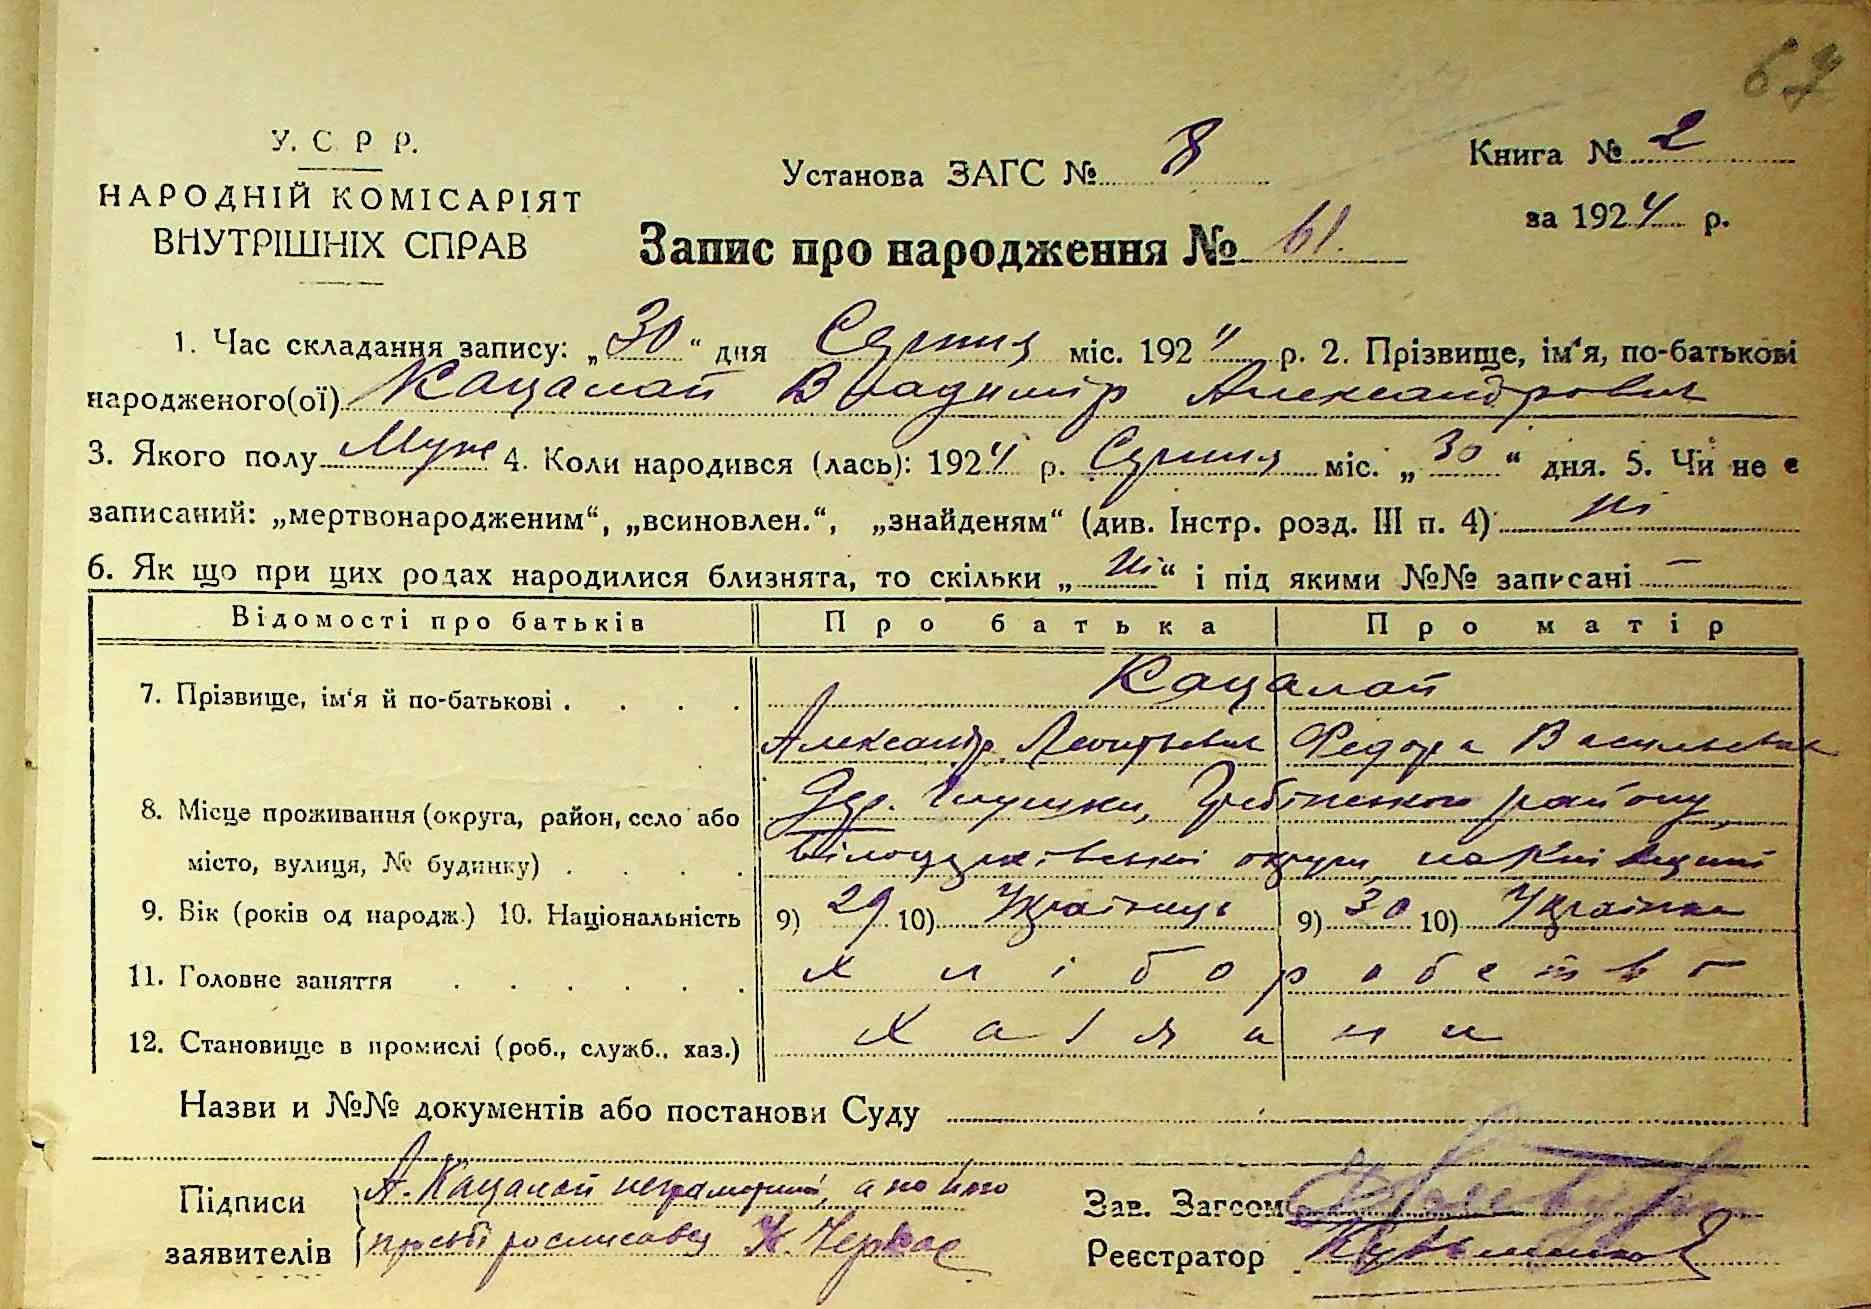 67
У. С. Р Р.
НАРОДНІЙ КОМІСАРІЯТ
ВНУТРІШНІХ СПРАВ
Установа ЗАГС № 8
Книга № 2
за 1924 р.
Запис про народження № 61.
1. Час складання запису: „30“ дня Серпня міс. 1924 р. 2. Прізвище, ім‘я, по-батькові
народженого(ої) Кацалап Владимір Александрович
3. Якого полу Муж 4. Коли народився (лась): 1924 р. Серпня міс. „30“ дня. 5. Чи не є
записаний: „мертвонародженим“, „всиновлен.“, „знайденям“ (див. Інстр. розд. III п. 4) ні
6. Як що при цих родах народилися близнята, то скільки „ні“ і під якими №№ записані –
Відомості про батьків Про батька Про матір
7. Прізвище, ім‘я й по-батькові . . . . Кацалап
Александр Леонтьевич Федора Васильевна
8. Місце проживання (округа, район, село або району,
місто, вулиця, № будинку) . . . . Білоцерківської округи на Київщині
9. Вік (років од народж.) 10. Національність 9) 29 10) Українець 9) 30 10) Українка
11. Головне заняття . . . . . . хліборобство
12. Становище в промислі (роб., служб., хаз.) Хазяини
Назви и №№ документів або постанови Суду
Підписи А. Кацалап неграмотний, а по його
заявителів просьбі росписавсь Черкас
Зав. Загсом
Реєстратор